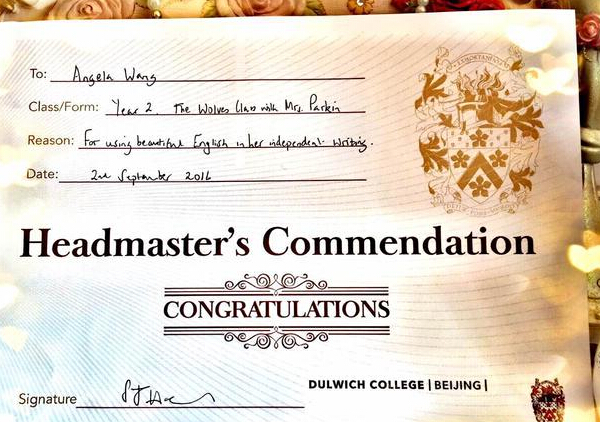 To: Angela Wang
Class/Form: Year 2. The Wolves Class with Mrs. Parkin
Reason: For using beautiful English in her independent writing.
Date: 2nd September 2016
Headmaster's Commendation
CONGRATULATIONS
DULWICH COLLEGE | BEIJING |
Signature